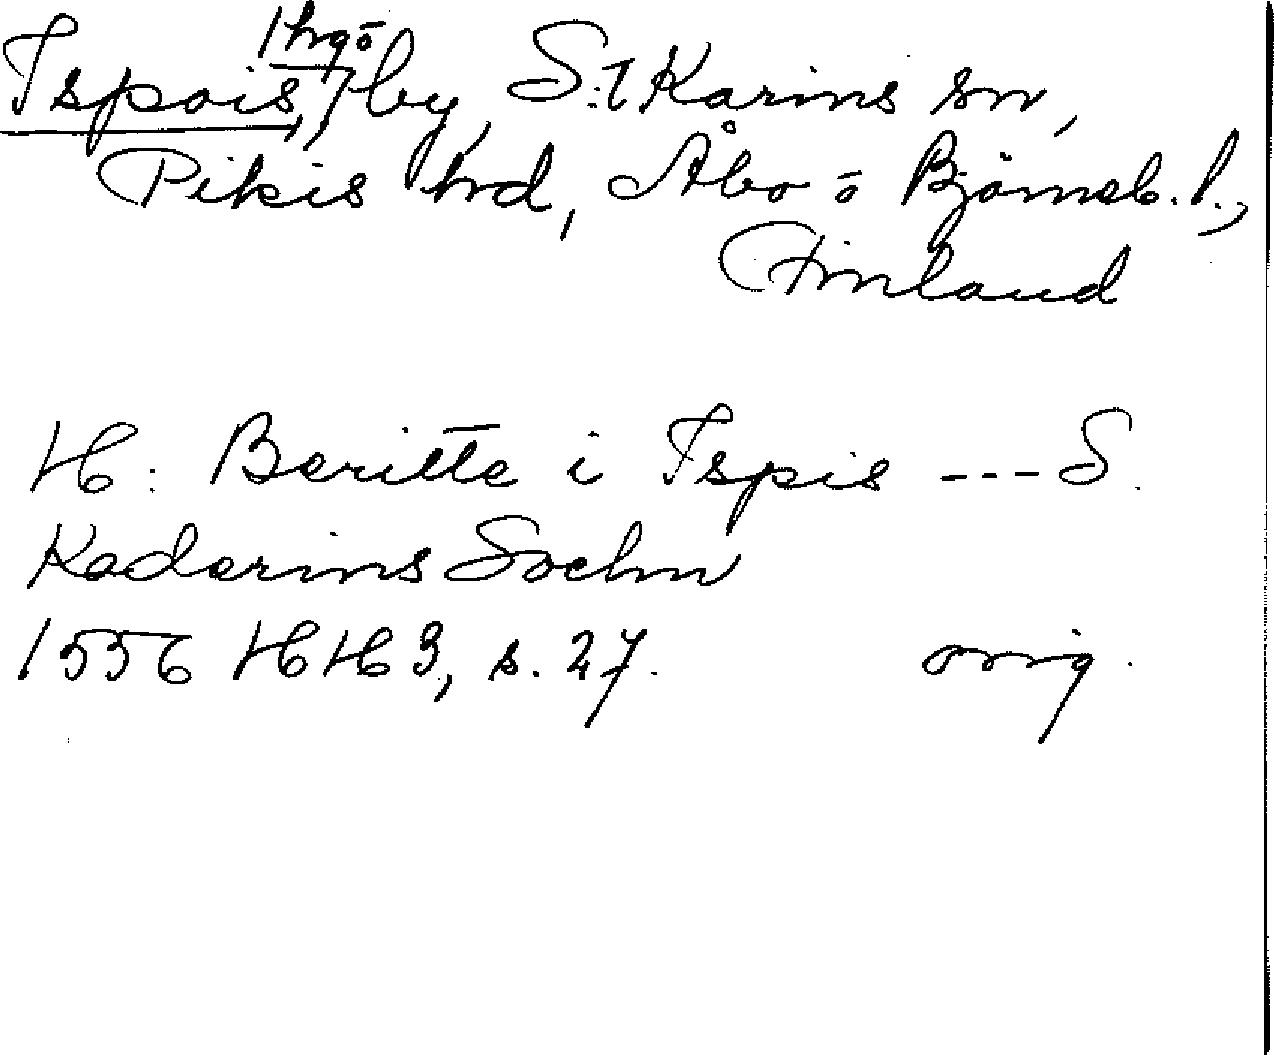 Ispois, hgö by, S:t Karins sn,
Pikis hrd, Åbo o Björneb. l.,
Finland
H: Beritte i Ispis --- S.
Kadarins Sochn
1556 HH 3, s. 27. orig.